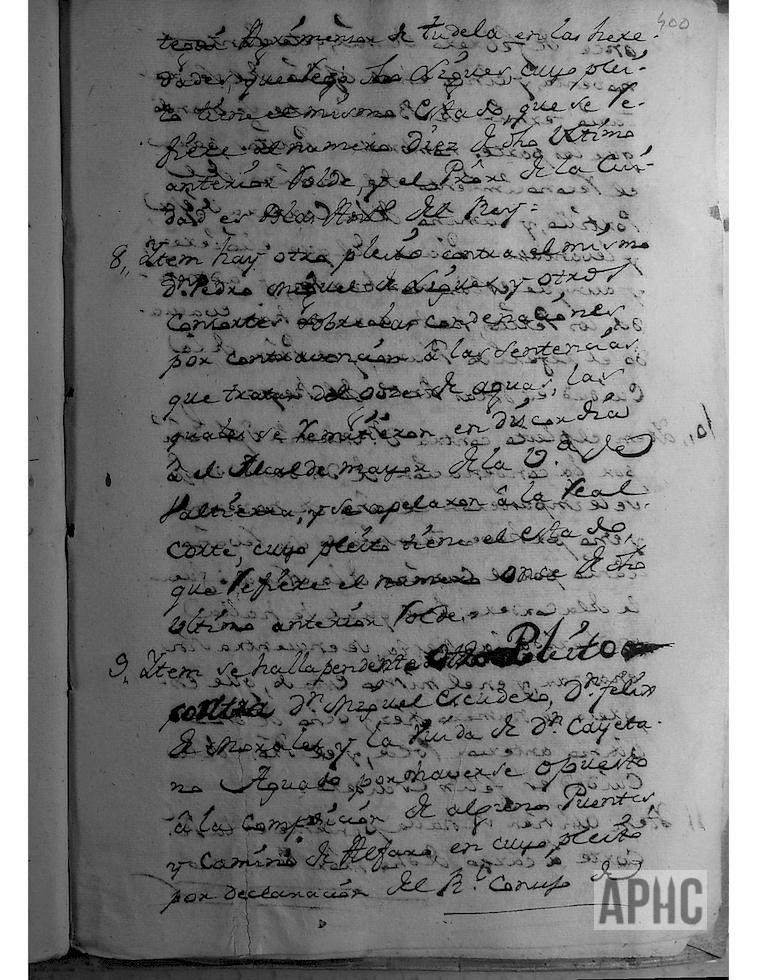 400
de tudela en las here-
dades, que llego dho Ligues, cuyo plei-
to tiene el mismo Estado, que se re-
fiere el numero Diez de dho Ultimo
anterior Rolde, y el Pror. de la Ciu-
dad es Blas del Rey =
8,, Ytem hay otro pleito contra el mismo
Dn Pedro Miguel de Ligues y otros
Consortes sobre las condenaciones
por contravencion â las sentencias
que tratan del orden de aguas, las
quales se remitieron en discordia
â el Alcalde mayor de la V.ª de
Valtierra, y se apelaron â la real
Corte, cuyo pleito tiene el estado,
que refiere el numero onse de dho
ultimo anterior Rolde.
10,
9,, Ytem se halla pendente otro Pleito
contra Dn Miguel Escudero, Dn felix
de Morales y la Viuda de Dn Cayeta-
no Aguado por haverse opuesto
â la composicion de algunos Puentes,
y camino de Alfaro en cuyo pleito
por declaracion del Rl Consejo de
APHC